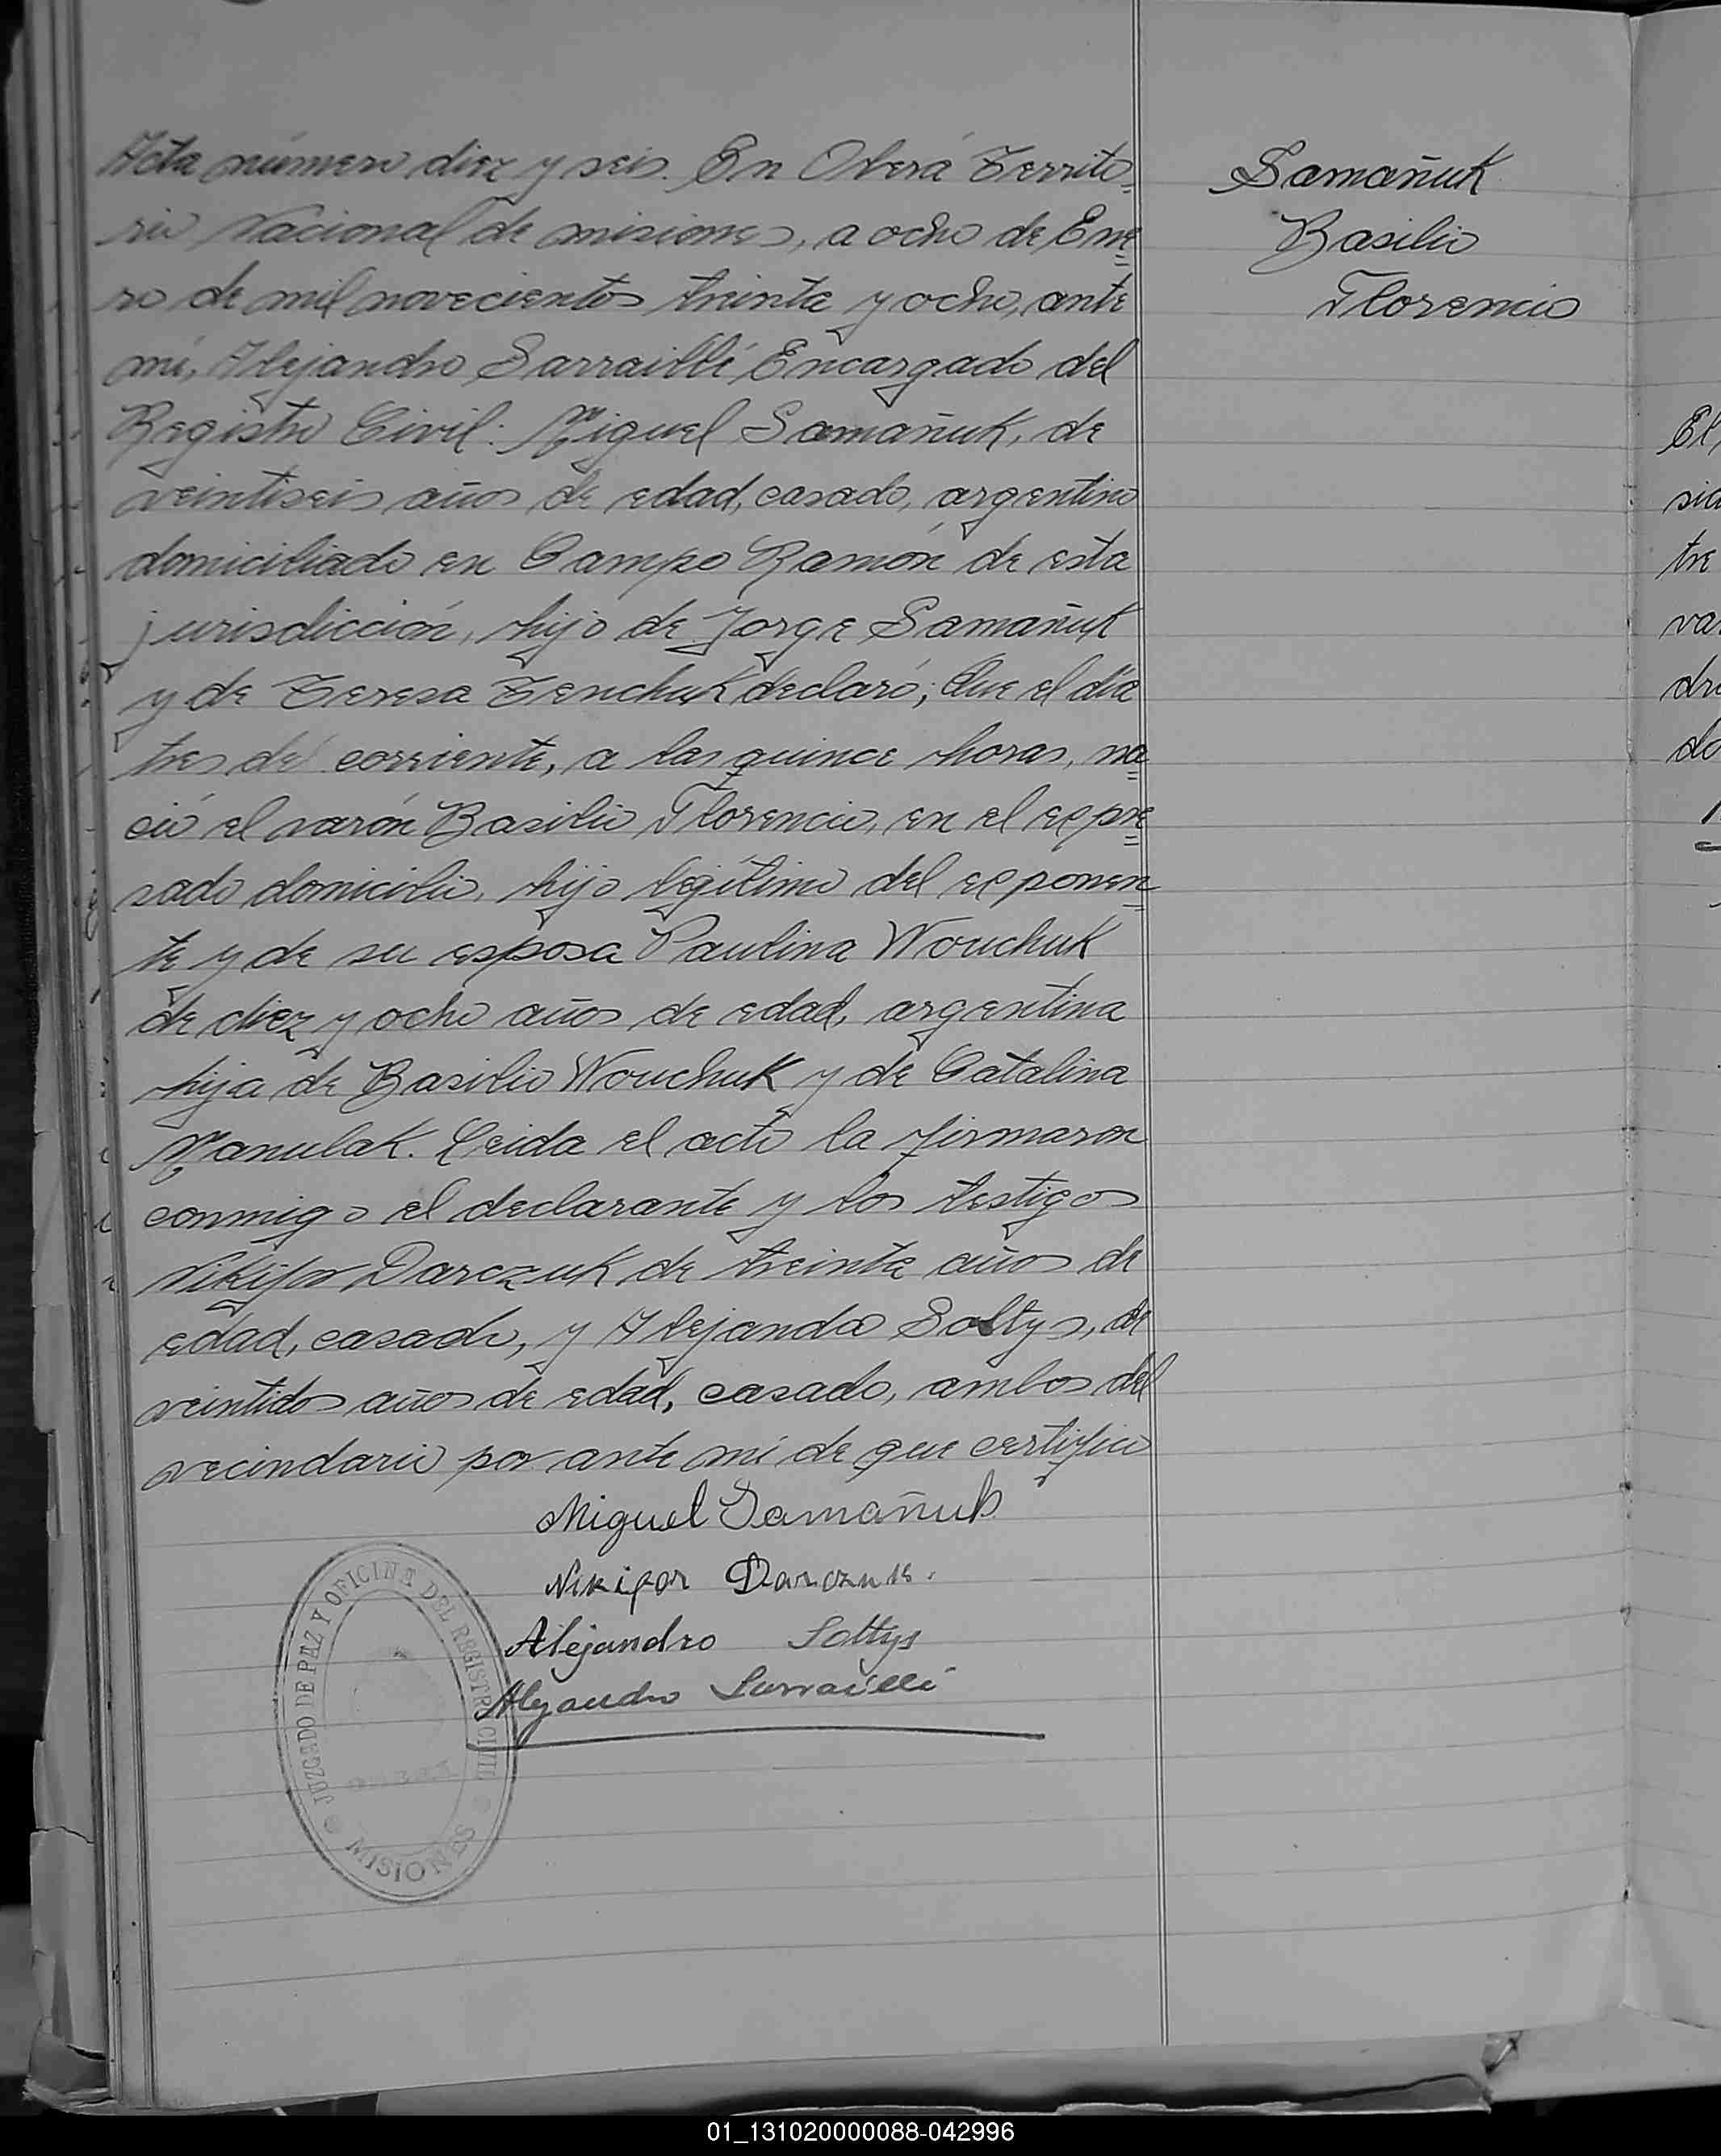 Acta número diez y seis. En Oberá Territo
rio Nacional de misiones, a ocho de Ene
ro de mil novecientos treinta y ocho, ante
mí, Alejandro Sarraillé Encargado del
Registro Civil: Miguel Samañuk, de
veintiseis años de edad, casado, argentino
domiciliado en Campo Ramón de esta
jurisdicción, hijo de Jorge Samañuk
y de Teresa Zenchuk declaró; Que el día
tres del corriente, a las quince horas, na
ció el varón Basilio Florencio, en el expre
sado domicilio, hijo legítimo del exponen
te y de su esposa Paulina Wouchuk
de diez y ocho años de edad, argentina
hija de Basilio Wouchuk y de Catalina
Manulak. Leida el acta la firmaron
conmigo el declarante y los testigos
Nikifor Darczuk de treinta años de
edad, casado, y Alejandro Soltys, de
veintidos años de edad, casado, ambos del
vecindario por ante mí de que certifico
Miguel Samañuk
Nikifor Darczuk.
Alejandro Soltys
Alejandro Sarraillé
JUZGADO DE PAZ Y OFICINA DEL REGISTRO CIVIL
MISIONES
Samañuk
Basilio
Florencio
El
sid
tre
va
dr
do
01_131020000088-042996